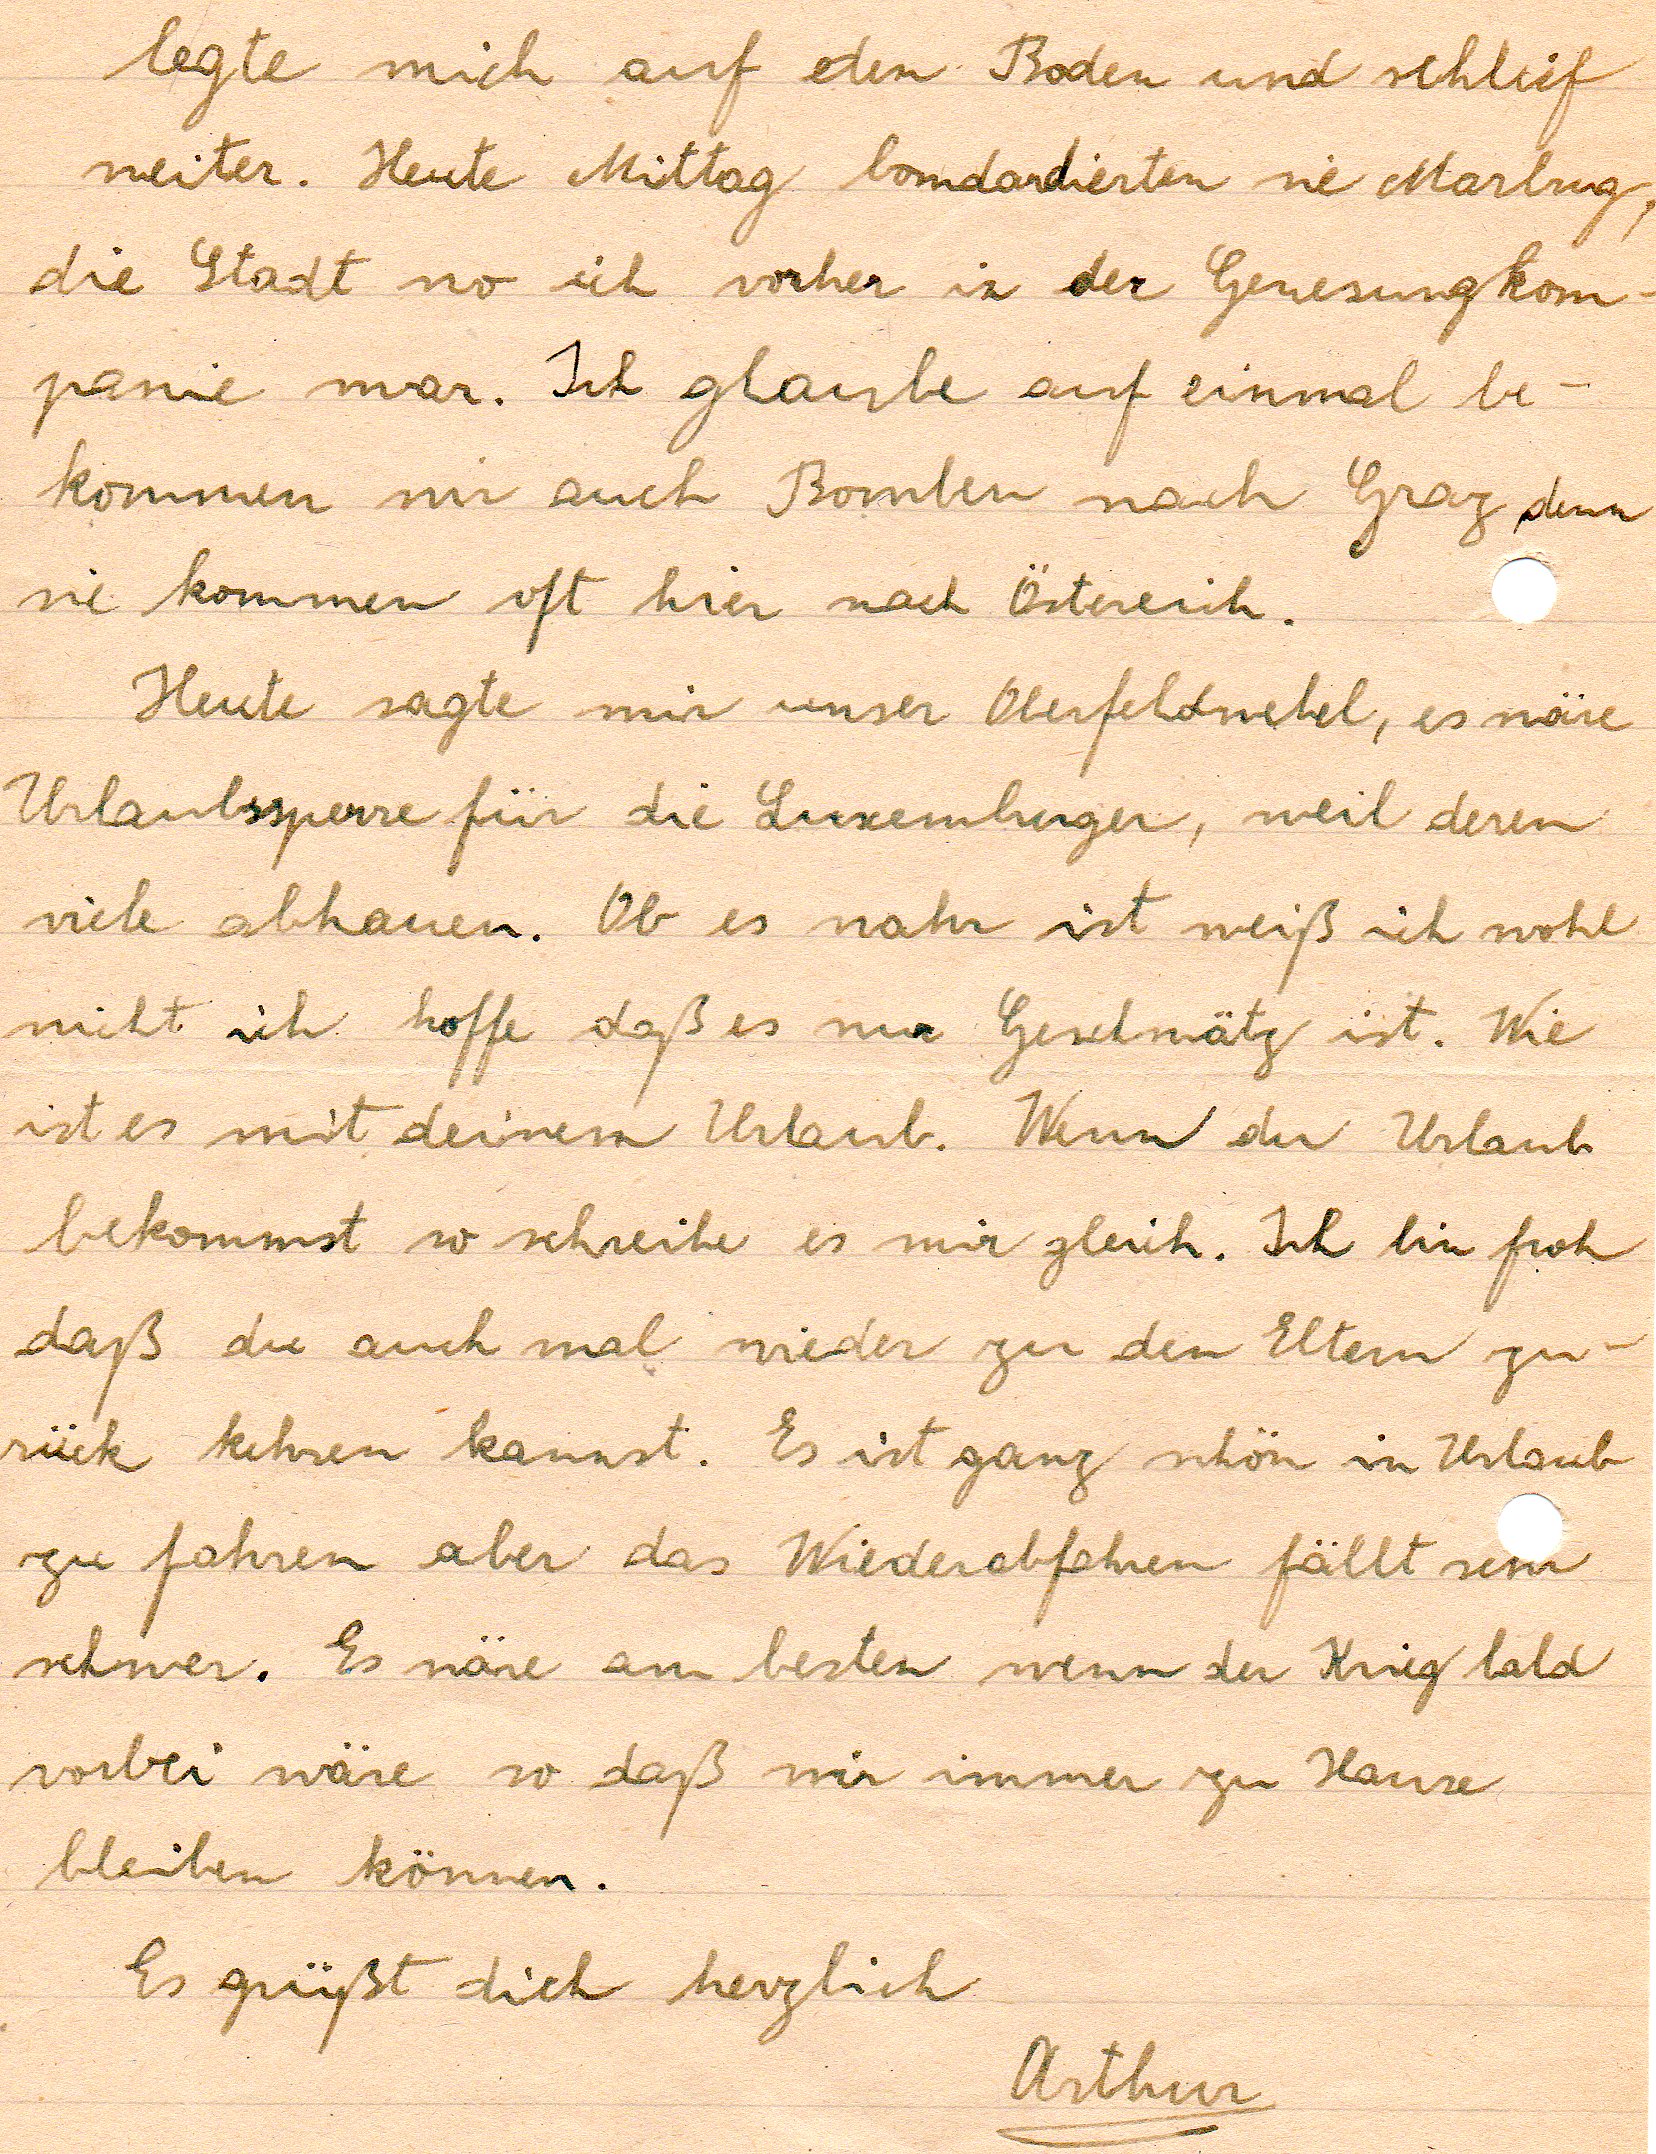 legte mich auf den Boden und schlief
weiter. Heute Mittag bomdardierten sie Marbug,
die Stadt wo ich vorher in der Genesungkom-
panie war. Ich glaube auf einmal be-
kommen wir auch Bomben nach Graz denn
sie kommen oft hier nach Östereich.
Heute sagte mir unser Oberfeldwebel, es wäre
Urlaubssperre für die Luxemburger, weil deren
viele abhauen. Ob es wahr ist weiß ich wohl
nicht ich hoffe daß es nur Geschwätz ist. Wie
ist es mit deinem Urlaub. Wenn du Urlaub
bekommst so schreibe es mir gleich. Ich bin froh
daß du auch mal wieder zu den Eltern zu-
rück kehren kannst. Es ist ganz schön in Urlaub
zu fahren aber das Wiederabfahren fällt sehr
schwer. Es wäre am besten wenn der Krieg bald
vorbei wäre so daß wir immer zu Hause
bleiben können.
Es grüßt dich herzlich
Arthur